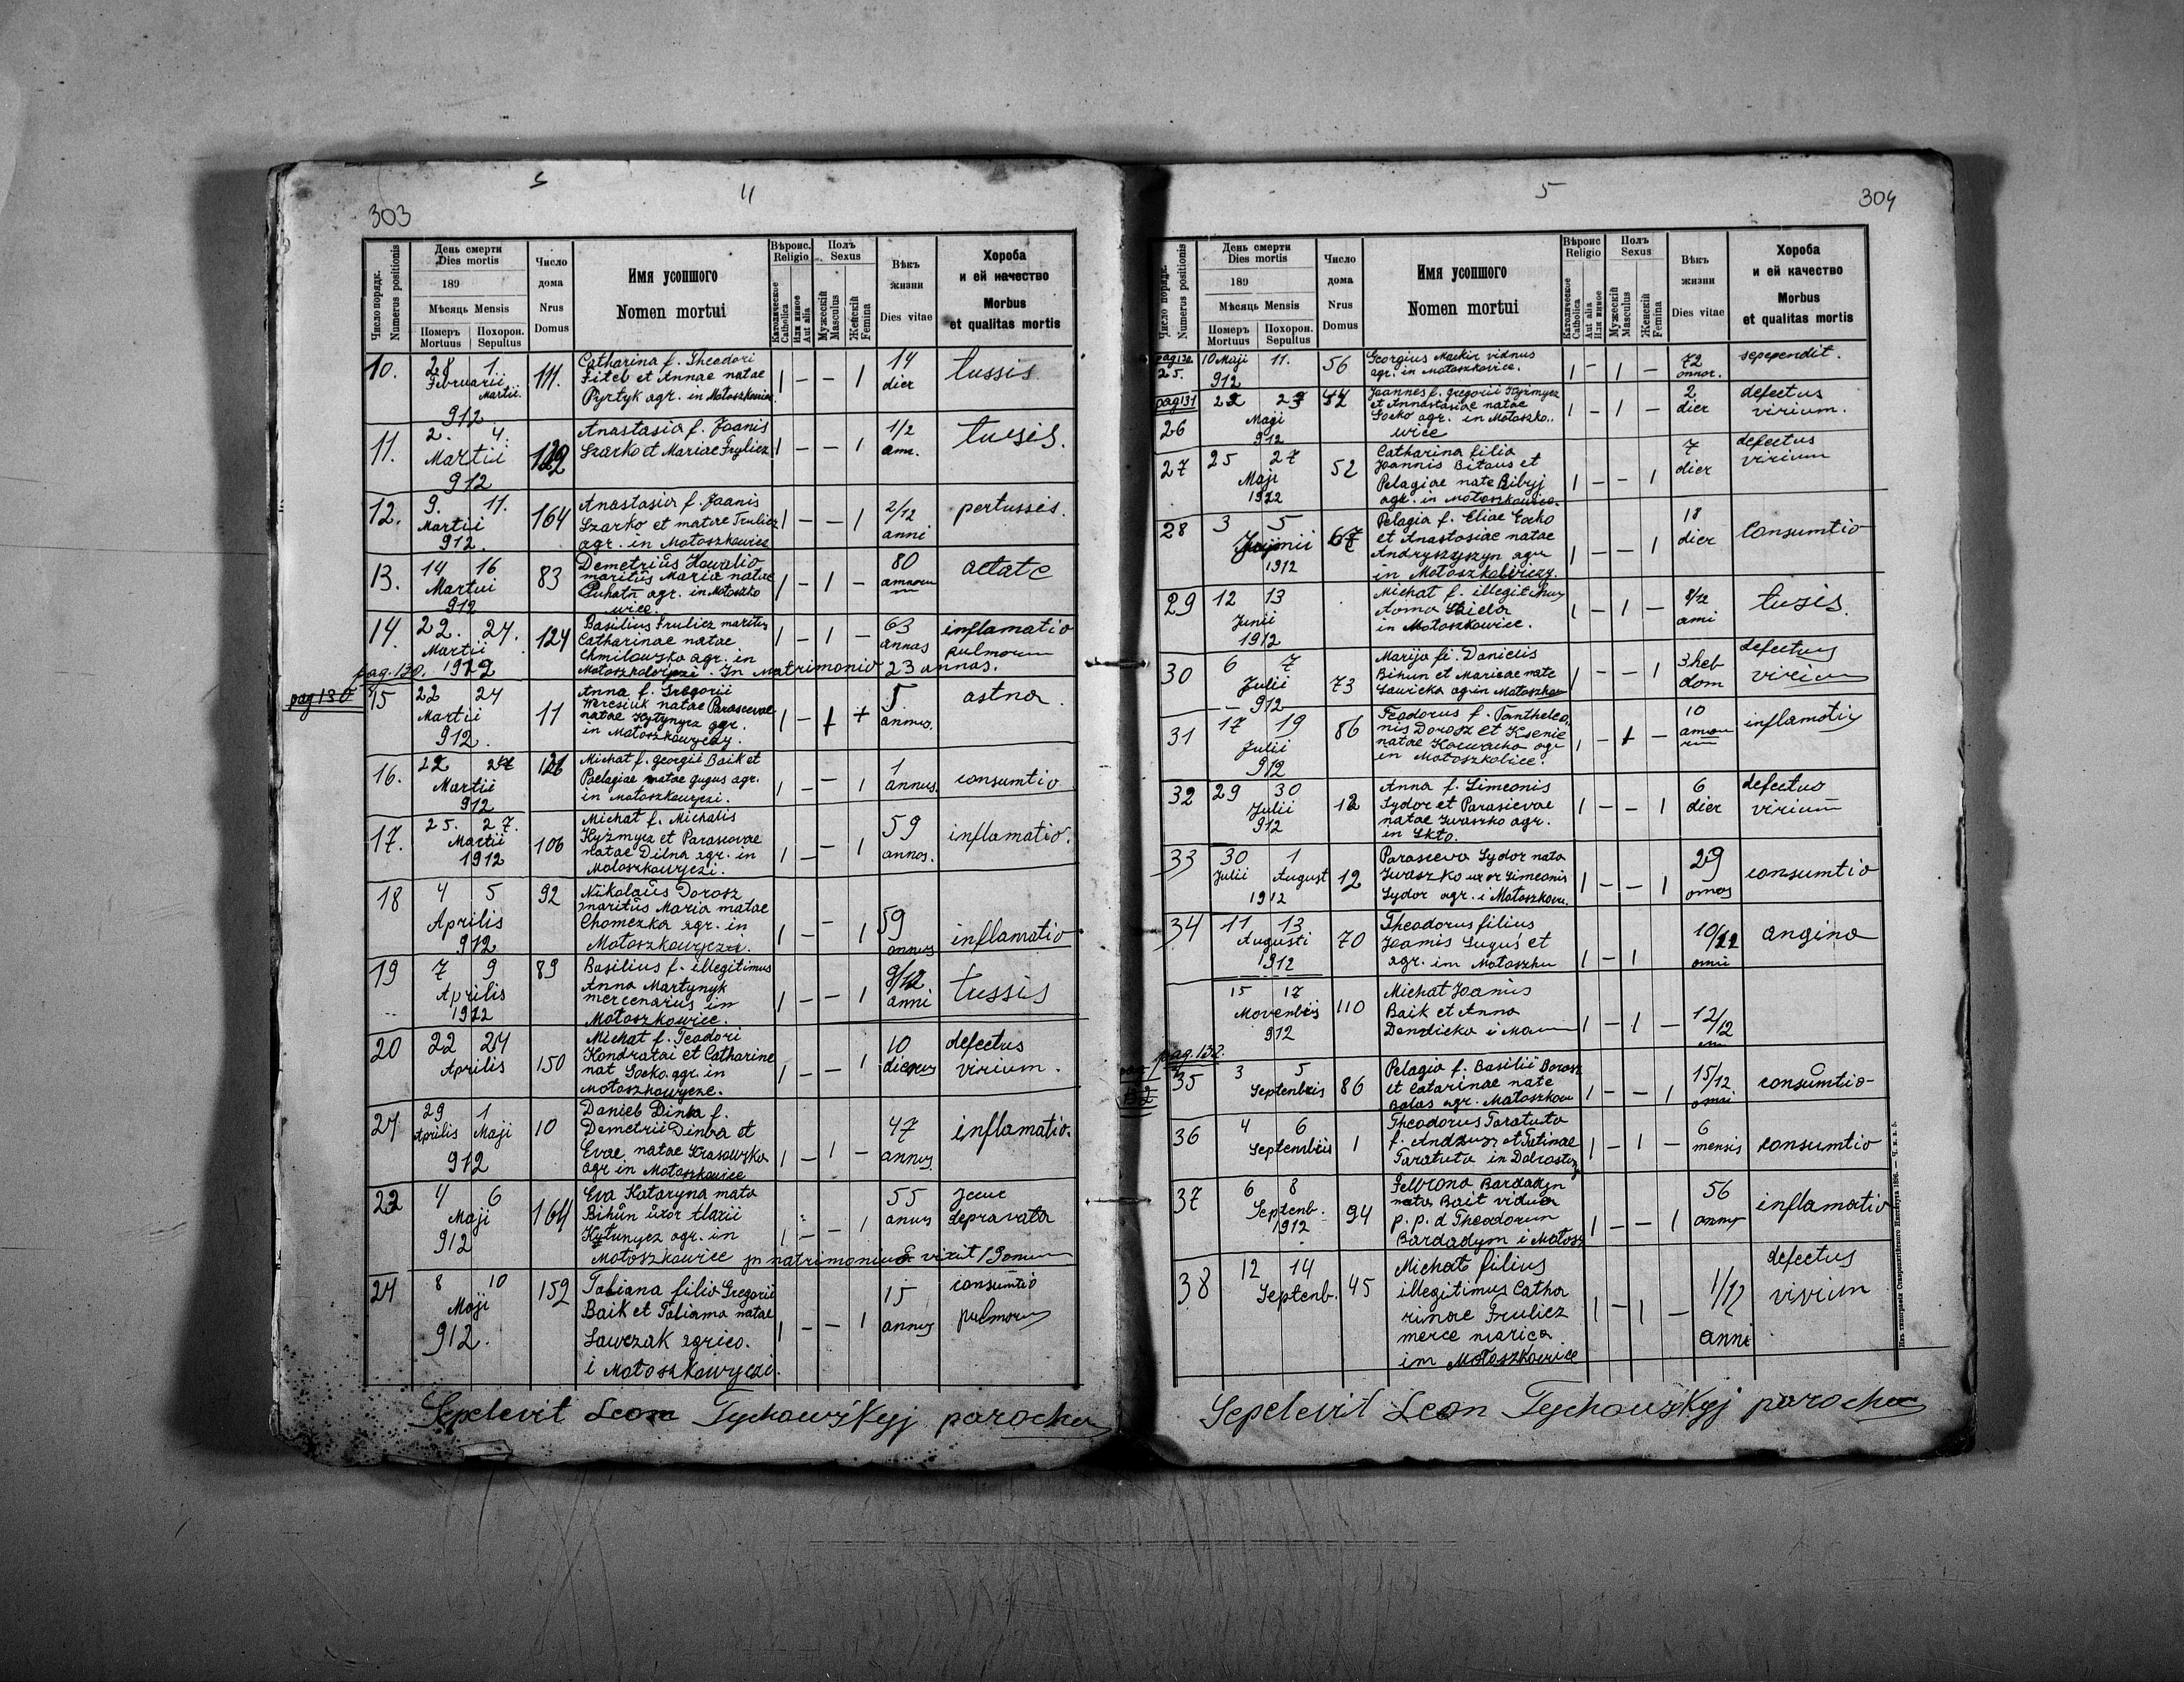 303
4
Число порядк.
Numerus positionis
День смерти
Dies mortis
189
Мѣсяць Mensis
Померъ Похорон.
Mortuus Sepultus
Число
дома
Nrus
Domus
Имя усопшого
Nomen mortui
Вѣроис.
Religio
Католическое
Catholica
Или иное
Aut alia
Полъ
Sexus
Мужескій
Masculus
Женскій
Femina
Вѣкъ
жизни
Dies vitae
Хороба
и ей качество
Morbus
et qualitas mortis
10. 28 1. Februarii Martii. 912 111.
Catharina f. Theodori
Fitel et Annae natae
Pyrtyk agr. in Mołoszkowice.
1 – – 1 14 dier tussis
11. 2. 4. Martii 912 129
Anastasia f. Joanis
Szarko et Mariae Frylicz
1 – – 1 1/2 ann. tussis.
12. 9. 11. Martii 912. 164
Anastasia f. Joanis
Szarko et matiae Frulicz
agr. in Mołoszkowice
1 – – 1 2/12 anni pertussis.
13. 14 16 Martii 912 83
Demetriŭs Kowalio
maritŭs Maria natae
Puhatn agr. in Mołoszko
wice.
1 – 1 – 80 annorum aetate
14. 22. 24. Martii 1912 124
Basilius Frulicz maritus
Catharinae natae
Chmilowska agr. in
Mołoszkowyczi. In matrimonio 23 annos.
1 – 1 – 63 annos inflamatio pulmorum
pag. 130.
pag 130
15 22 24 Martii 912. 11
Anna f. Gregorii
Weresiuk natae Parascevae
natae Kytynycz agr.
in Mołoszkowyczy.
1 – + + 5 annos. astna.
16. 22 24 Martii 912 121
Michał f. georgii Baik et
Paelagiae natae gugus agr.
in mołoszkowyczi.
1 – – 1 1 annus. consumtio
17. 25. 27. Martii 1912 106
Michał f. Michalis
Kyzmycz et Parascevae
natae Dilna agr. in
Mołoszkowyczi.
1 – – 1 59 annos. inflamatio.
18 4 5 Aprilis 912 92
Nikolaŭs Dorosz
maritŭs Maria matae
Chomezka agr. in
Mołoszkowyczi.
1 – – 1 59 annus inflamatio
19 7 9 Aprilis 1912 89
Basilius f. illegitimus
Anna Martynyk
mercenarius in
Mołoszkowice.
1 – – 1 9/12 anni tussis
20 22 24 Aprilis 150
Michał f. Teodori
Kondratai et Catharine
nat Socko agr. in
Mołoszkowycze.
1 – – 1 10 defectus virium.
21 29 1 Aprilis Maji 912 10
Danieł Dinba f.
Demetrii Dinba et
Evae natae Krasowska
agr in Mołoszkowice
1 – 1 – 47 annus inflamatio.
22 4 6 Maji 912 164
Eva Kataryna nata
Bihŭn ŭxor
Kytunycz agr. in
Mołoszkowice in natrimoniuo vixit 19
1 – – 1 55 anus depravata
24 8 10 Maji 912. 159
Tatiana filia Gregorii
Baik et Tatiama natae
Sawczak agrico.
i Mołoszkowyczi.
1 – – 1 15 annus consumtio pulmorum
Sepelevit Leon Tychowśkyj parochus
5
304
Число порядк.
Numerus positionis
День смерти
Dies mortis
189
Мѣсяць Mensis
Померъ Похорон.
Mortuus Sepultus
Число
дома
Nrus
Domus
Имя усопшого
Nomen mortui
Вѣроис
Religio
Католическое
Catholica
Aut alia
Или иное
Полъ
Sexus
Мужескій
Masculus
Женскій
Femina
Вѣкъ
жизни
Dies vitae
Хороба
и ей качество
Morbus
et qualitas mortis
pag 130.
25. 10 Maji 11. 912 56
Georgius Mackiv vidnus
agr. in Mołoszkowice.
1 – 1 – 72 annor. sepependit.
pag 131
26 22 23 Magi 912 42
Joannes f. gregorii Kyzmycz
et Annastasiae natae
Socko agr. in Mołoszko..
wice
1 – 1 – 2 dier defectus virium.
27 25 27 Maji 1912 52
Catharina filia
Joannis Bitaus et
Pelagiae nate Bibyj
agr. in Mołoszkowice.
1 – – 1 7 dier defectus virium
28 3 5 Junii 1912 67
Pelagia f. Eliae Socko
et Anastosiae natae
Andryszyszyn agr
in Mołoszkowiczy.
1 – – 1 18 dier Consumtio
29 12 13 Junii 1912
Michał f. illegitimus
in Mołoszkowice.
1 – 1 – 8/12 ami tusis.
30 6 7 Julii 912 73
Marija fi. Danielis
Bihun et Mariae nate
Sawicka agin Mołoszkow
1 – – 1 3 heb dom defectus virium
31 17 19 Julii 912 86
Feodorus f. Pantheleo,
nis Dorosz et Ksenie
natae Kowacka agr
in Mołoszkolice.
1 – + – 10 inflamotiy
32 29 30 Julii 912 12
Anna f. Simeonis
Sydor et Parasievae
natae Iwaszko agr.
in Skto.
1 – – 1 6 dier defectuo virium
33 30 1 Julii August 1912 12
Parasceva Sydor nata
Iwaszko uxor Simeonis
Sydor agr. i Mołoszkow.
1 – – 1 29 annos consumtio
34 11 13 Augusti 1912 70
Theodorus filius
Joamis Suguś et
agr. im Mołoszku
1 – 1 10/12 angina
15 17 Movenbris 912 110
Michał Joanis
Baik et Anna
Dendicka i Mo
1 – 1 – 12/12
pag. 132.
35 3 5 Septenbris 86
Pelagia f. Basilii Dorosz
et Catarinae nate
Balas agr. Mołoszkow
1 – – 1 15/12 consŭmtio-
36 4 6 Septembris 1
Theodorus Taratuta
f. Andruzz et Tatinae
Taratuta in Dobrostany
1 – 1 – 6 mensis consumtio
37 6 8 Septenb. 1912 94
Felbrona Bardadyn
nata Bait vidua
p. p. d Theodorum
Bardadym i Mołosz
1 – – 1 56 annus inflamatio
38 12 14 Septenb. 45
Michał filius
illegitimus Catha
rinae Frulicz
merce narica
im Mołoszkowice
1 – 1 – 1/12 anni defectus virium
Sepelevit Leon Tychowśkyj parochus
Изъ типографіи Ставропигійского Института 1896. — Ч. и. в. 5.